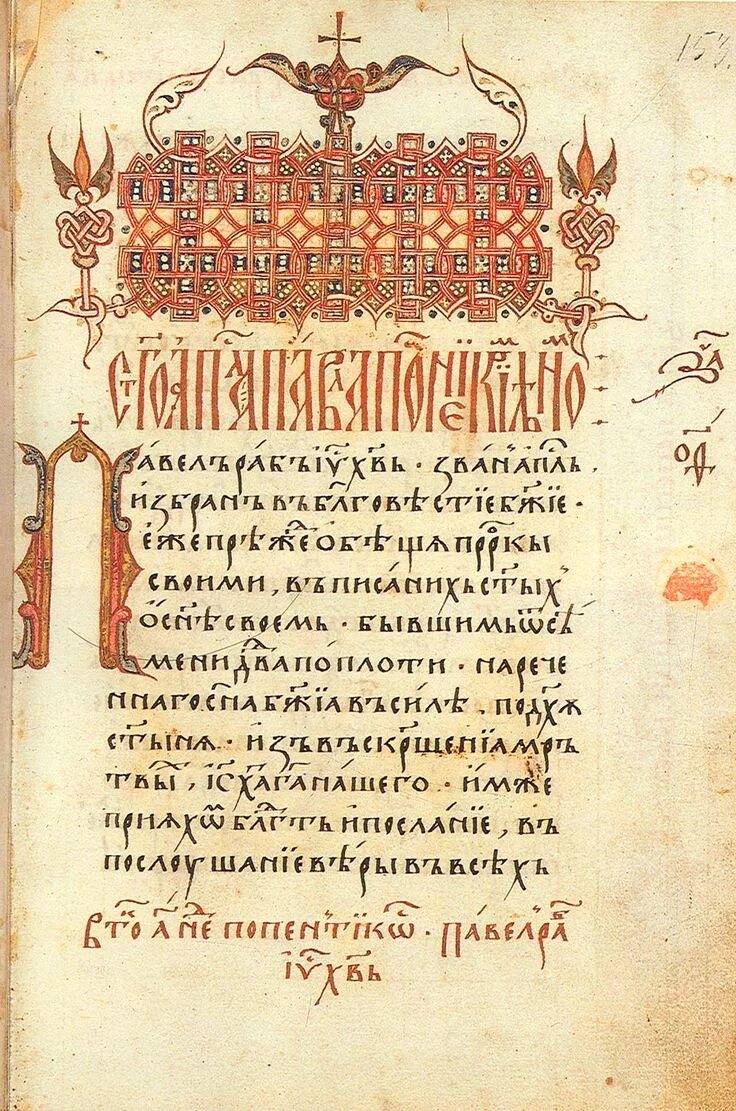 153.
ст҃гоап҃лапа́влапосла́нїекри́млѧно
за҃
ѿ
Па́велъра́бъі҃ѵхв҃ь · зва́нап҃лъ,
и҆збра́нъвъбл҃говѣстїеб҃жїе ·
е҆жепрѣ́жеѻ҆бѣщѧпрⷪ҇рѡкы
свои́ми, въписа́нихьст҃ых
ѻ҆сн҃ѣсвоемь · бы́вшимьѿсѣ́
менид҃вапоплоти · нарече
ннагосн҃аб҃жїавъси́лѣ, под҃хꙋ
ст҃ынѧ · и҆зъвъскр҃шенїамръ
твы́, і҆с҃х҃ага҃на́шего · и҆мже
прїѧхѡ҆мбл҃гⷣтьи҆посла́нїе, въ
послоу́шанїевѣрывъвсѣ́хъ
вто҃а҃недпопентикѡ · па́велъра́б
і҃ѵхв҃ь